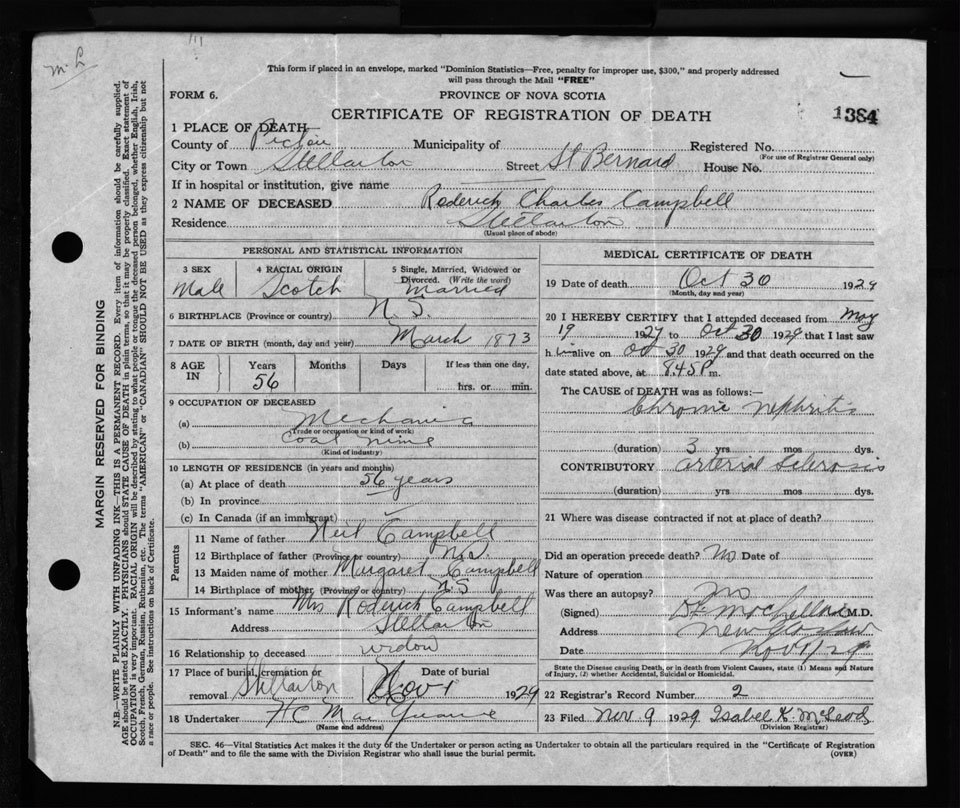 m. L
This form if placed in an envelope, marked "Dominion Statistics—Free, penalty for improper use, $300," and properly addressed
will pass through the Mail "FREE"
FORM 6.
PROVINCE OF NOVA SCOTIA
CERTIFICATE OF REGISTRATION OF DEATH
1384
1 PLACE OF DEATH
County of Pictou Municipality of Registered No.
(For use of Registrar General only)
City or Town Stellarton Street St Bernard House No.
If in hospital or institution, give name
2 NAME OF DECEASED Roderick Charles Campbell
Residence Stellarton
(Usual place of abode)
PERSONAL AND STATISTICAL INFORMATION
3 SEX 4 RACIAL ORIGIN 5 Single, Married, Widowed or
Divorced. (Write the word)
Male Scotch Married
6 BIRTHPLACE (Province or country) N. S.
7 DATE OF BIRTH (month, day and year) March 1873
8 AGE IN Years Months Days If less than one day,
56 hrs. or min.
9 OCCUPATION OF DECEASED
(a) Mechanic
(Trade or occupation or kind of work)
(b) Coal mine
(Kind of industry)
10 LENGTH OF RESIDENCE (in years and months)
(a) At place of death 56 years
(b) In province
(c) In Canada (if an immigrant)
Parents
11 Name of father Neil Campbell
12 Birthplace of father (Province or country) N.S
13 Maiden name of mother Margaret Campbell
14 Birthplace of mother (Province or country) N S
15 Informant's name Mrs Roderick Campbell
Address Stellarton
16 Relationship to deceased widow
17 Place of burial, cremation or removal Stellarton Date of burial Nov 1 1929
18 Undertaker H C
(Name and address)
MEDICAL CERTIFICATE OF DEATH
19 Date of death Oct 30 1929
(Month, day and year)
20 I HEREBY CERTIFY that I attended deceased from May
19 1927 to Oct 30 1929 that I last saw
h im alive on Oct 30 1929 and that death occurred on the
date stated above, at 8.45 P m.
The CAUSE of DEATH was as follows:—
Chronic nephritis
(duration) 3 yrs mos dys.
CONTRIBUTORY arterial sclerosis
(duration) yrs mos dys.
21 Where was disease contracted if not at place of death?
Did an operation precede death? No Date of
Nature of operation
Was there an autopsy? No
(Signed) M.D.
Address New Glasgow
Date Nov 1/29
State the Disease causing Death, or in death from Violent Causes, state (1) Means and Nature
of Injury, (2) whether Accidental, Suicidal or Homicidal.
22 Registrar's Record Number 2
23 Filed Nov. 9 1929 Isabel K. McLeod
(Division Registrar)
SEC. 46—Vital Statistics Act makes it the duty of the Undertaker or person acting as Undertaker to obtain all the particulars required in the "Certificate of Registration
of Death" and to file the same with the Division Registrar who shall issue the burial permit. (OVER)
MARGIN RESERVED FOR BINDING
N.B.—WRITE PLAINLY WITH UNFADING INK—THIS IS A PERMANENT RECORD. Every item of information should be carefully supplied.
AGE should be stated EXACTLY. PHYSICIANS should STATE CAUSE OF DEATH in plain terms, so that it may be properly classified. Exact statement of
OCCUPATION is very important. RACIAL ORIGIN will be described by stating to what people or tongue the deceased person belonged, whether English, Irish,
Scotch, French, German, Russian, Ruthenian, etc. The terms "AMERICAN" or "CANADIAN" SHOULD NOT BE USED as they express citizenship but not
a race or people. See instructions on back of Certificate.